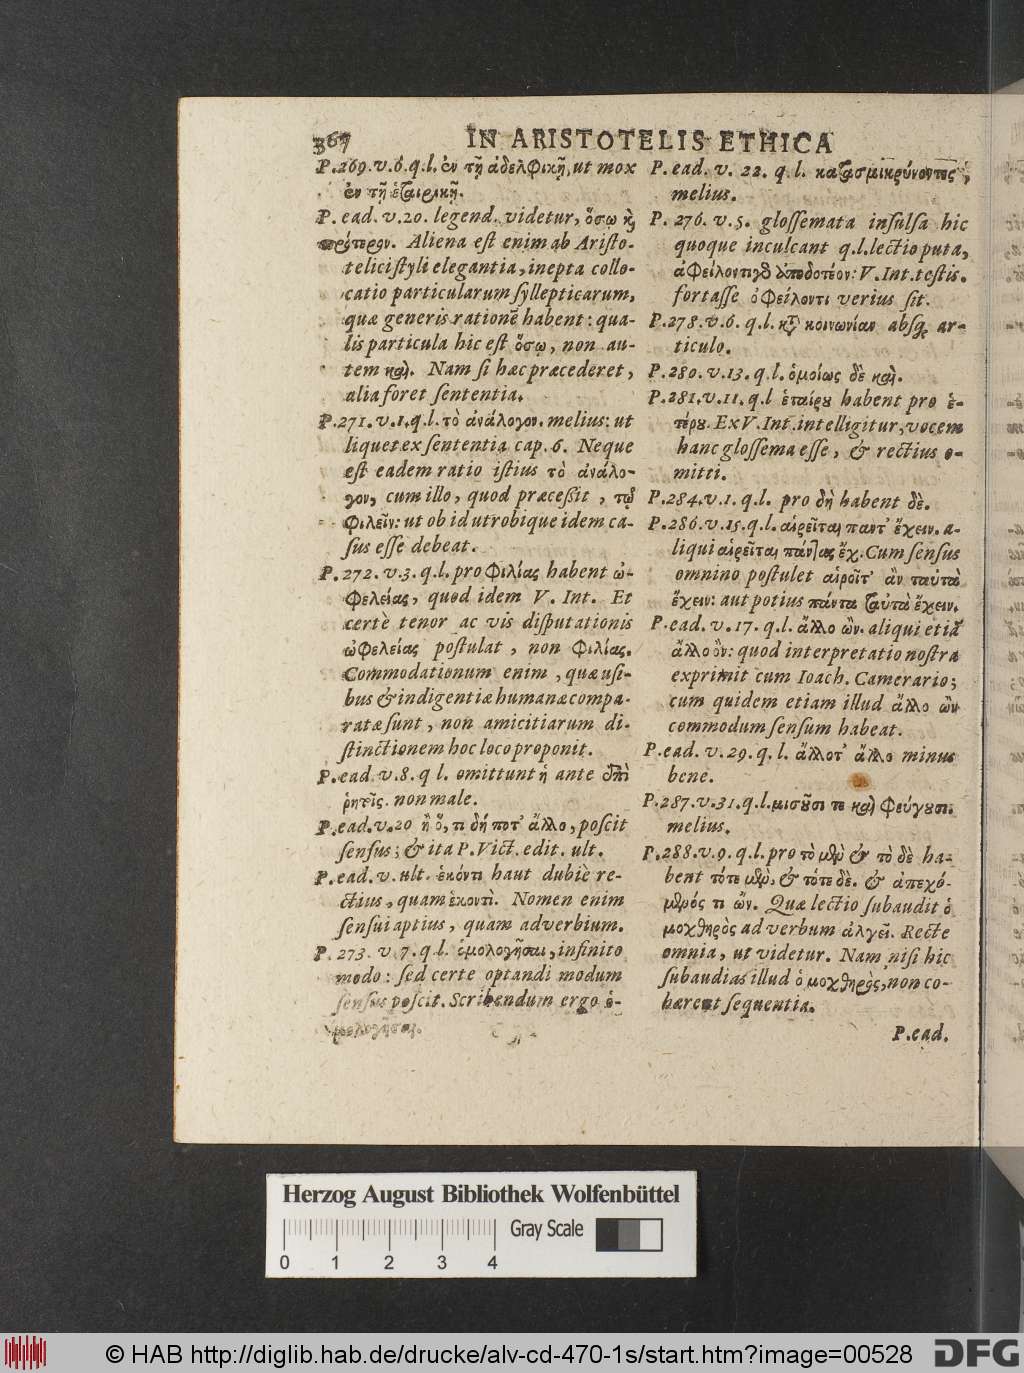 367
IN ARISTOTELIS ETHICA
P.269.v.6.q.l. ἐν τῇ ἀδελφικῇ, ut mox
ἐν τῇ ἑταιρικῇ.
P. ead. v.20. legend. videtur, ὅσῳ καὶ
πρότερον. Aliena est enim ab Aristo-
telici styli elegantia, inepta collo-
catio particularum syllepticarum,
quæ generis rationē habent: qua-
lis particula hic est ὅσῳ, non au-
tem καὶ. Nam si hæc præcederet,
alia foret sententia.
P.271.v.1.q.l. τὸ ἀνάλογον. melius: ut
liquet ex sententia cap. 6. Neque
est eadem ratio istius τὸ ἀνάλο-
γον, cum illo, quod præceßit, τῷ
φιλεῖν: ut ob id utrobique idem ca-
sus esse debeat.
P. 272. v.3. q.l. pro φιλίας habent ὠ-
φελείας, quod idem V. Int. Et
certè tenor ac vis disputationis
ὠφελείας postulat, non φιλίας.
Commodationum enim, quæ usi-
bus & indigentiæ humanæ compa-
ratæ sunt, non amicitiarum di-
stinctionem hoc loco proponit.
P. ead. v.8. q l. omittunt ἡ ante ἐπὶ
ῥητοῖς. non male.
P. ead. v.20 ἢ ὅ, τι δή ποτ' ἄλλο, poscit
sensus; & ita P. Vict. edit. ult.
P. ead. v. ult. ἑκόντι haut dubiè re-
ctius, quam ἑκοντὶ. Nomen enim
sensui aptius, quam adverbium.
P. 273. v 7. q.l. ὁμολογῆσαι, infinito
modo: sed certe optandi modum
sensus poscit. Scribendum ergo ὁ-
μολογῆσαι.
P. ead. v. 22. q. l. κατασμικρύνοντος,
melius.
P. 276. v.5. glossemata insulsa hic
quoque inculcant q.l. lectio puta,
ἀφείλοντι γὰρ ἀποδοτέον: V. Int. testis.
fortasse ὀφείλοντι verius sit.
P.278.v.6. q.l. κατὰ κοινωνίαν absq; ar-
ticulo.
P.280.v.13. q.l. ὁμοίως δὲ καὶ.
P.281.v.11. q.l ἑταίρου habent pro ἑ-
τέρου. Ex V. Int. intelligitur, vocem
hanc glossema esse, & rectius o-
mitti.
P.284.v.1. q.l. pro δὴ habent δὲ.
P.286.v.15.q.l. αἱρεῖται παντ' ἔχειν. a-
liqui αἱρεῖται πάντως ἔχ. Cum sensus
omnino postulet αἱροῖτ' ἂν ταῦτα
ἔχειν: aut potius πάντα ταῦτα ἔχειν.
P. ead. v. 17. q.l. ἄλλο ὢν. aliqui etiā
ἄλλο ὂν: quod interpretatio nostra
exprimit cum Ioach. Camerario;
cum quidem etiam illud ἄλλο ὢν
commodum sensum habeat.
P. ead. v. 29. q. l. ἄλλοτ' ἄλλο minus
bene.
P.287.v.31. q.l. μισοῦσί τε καὶ φεύγουσι.
melius.
P.288.v.9. q.l. pro τὸ μὲν & τὸ δὲ ha-
bent τότε μὲν, & τότε δὲ. & ἀπεχό-
μενός τι ὤν. Quæ lectio subaudit ὁ
μοχθηρὸς ad verbum ἀλγεῖ. Recte
omnia, ut videtur. Nam nisi hic
subaudias illud ὁ μοχθηρὸς, non co-
hærent sequentia.
P. ead.
Herzog August Bibliothek Wolfenbüttel
Gray Scale
0 1 2 3 4
© HAB http://diglib.hab.de/drucke/alv-cd-470-1s/start.htm?image=00528
DFG